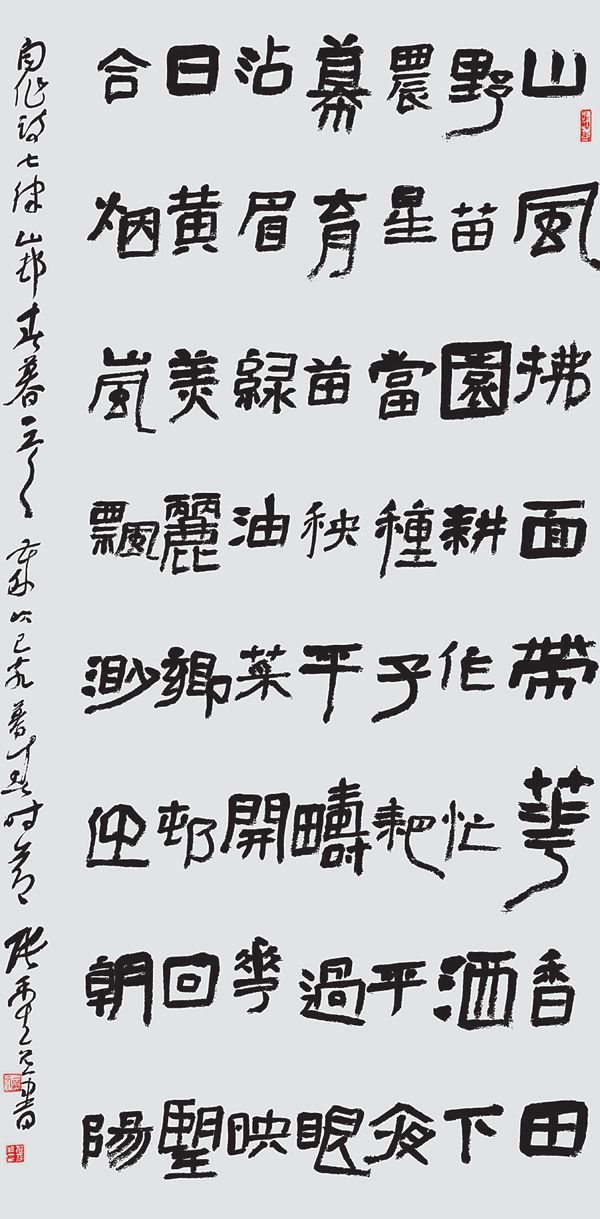 山風拂面帶華香田
野苗園耕作忙洒下
農星當種子耙平夜
幕育苗秧平疇過眼
沾眉緑油菜開花映
日黄美麗鄉邨回望
合烟嵐飄渺迎朝陽
自作詩七律山邨春暮 歲次己亥 时 張 書